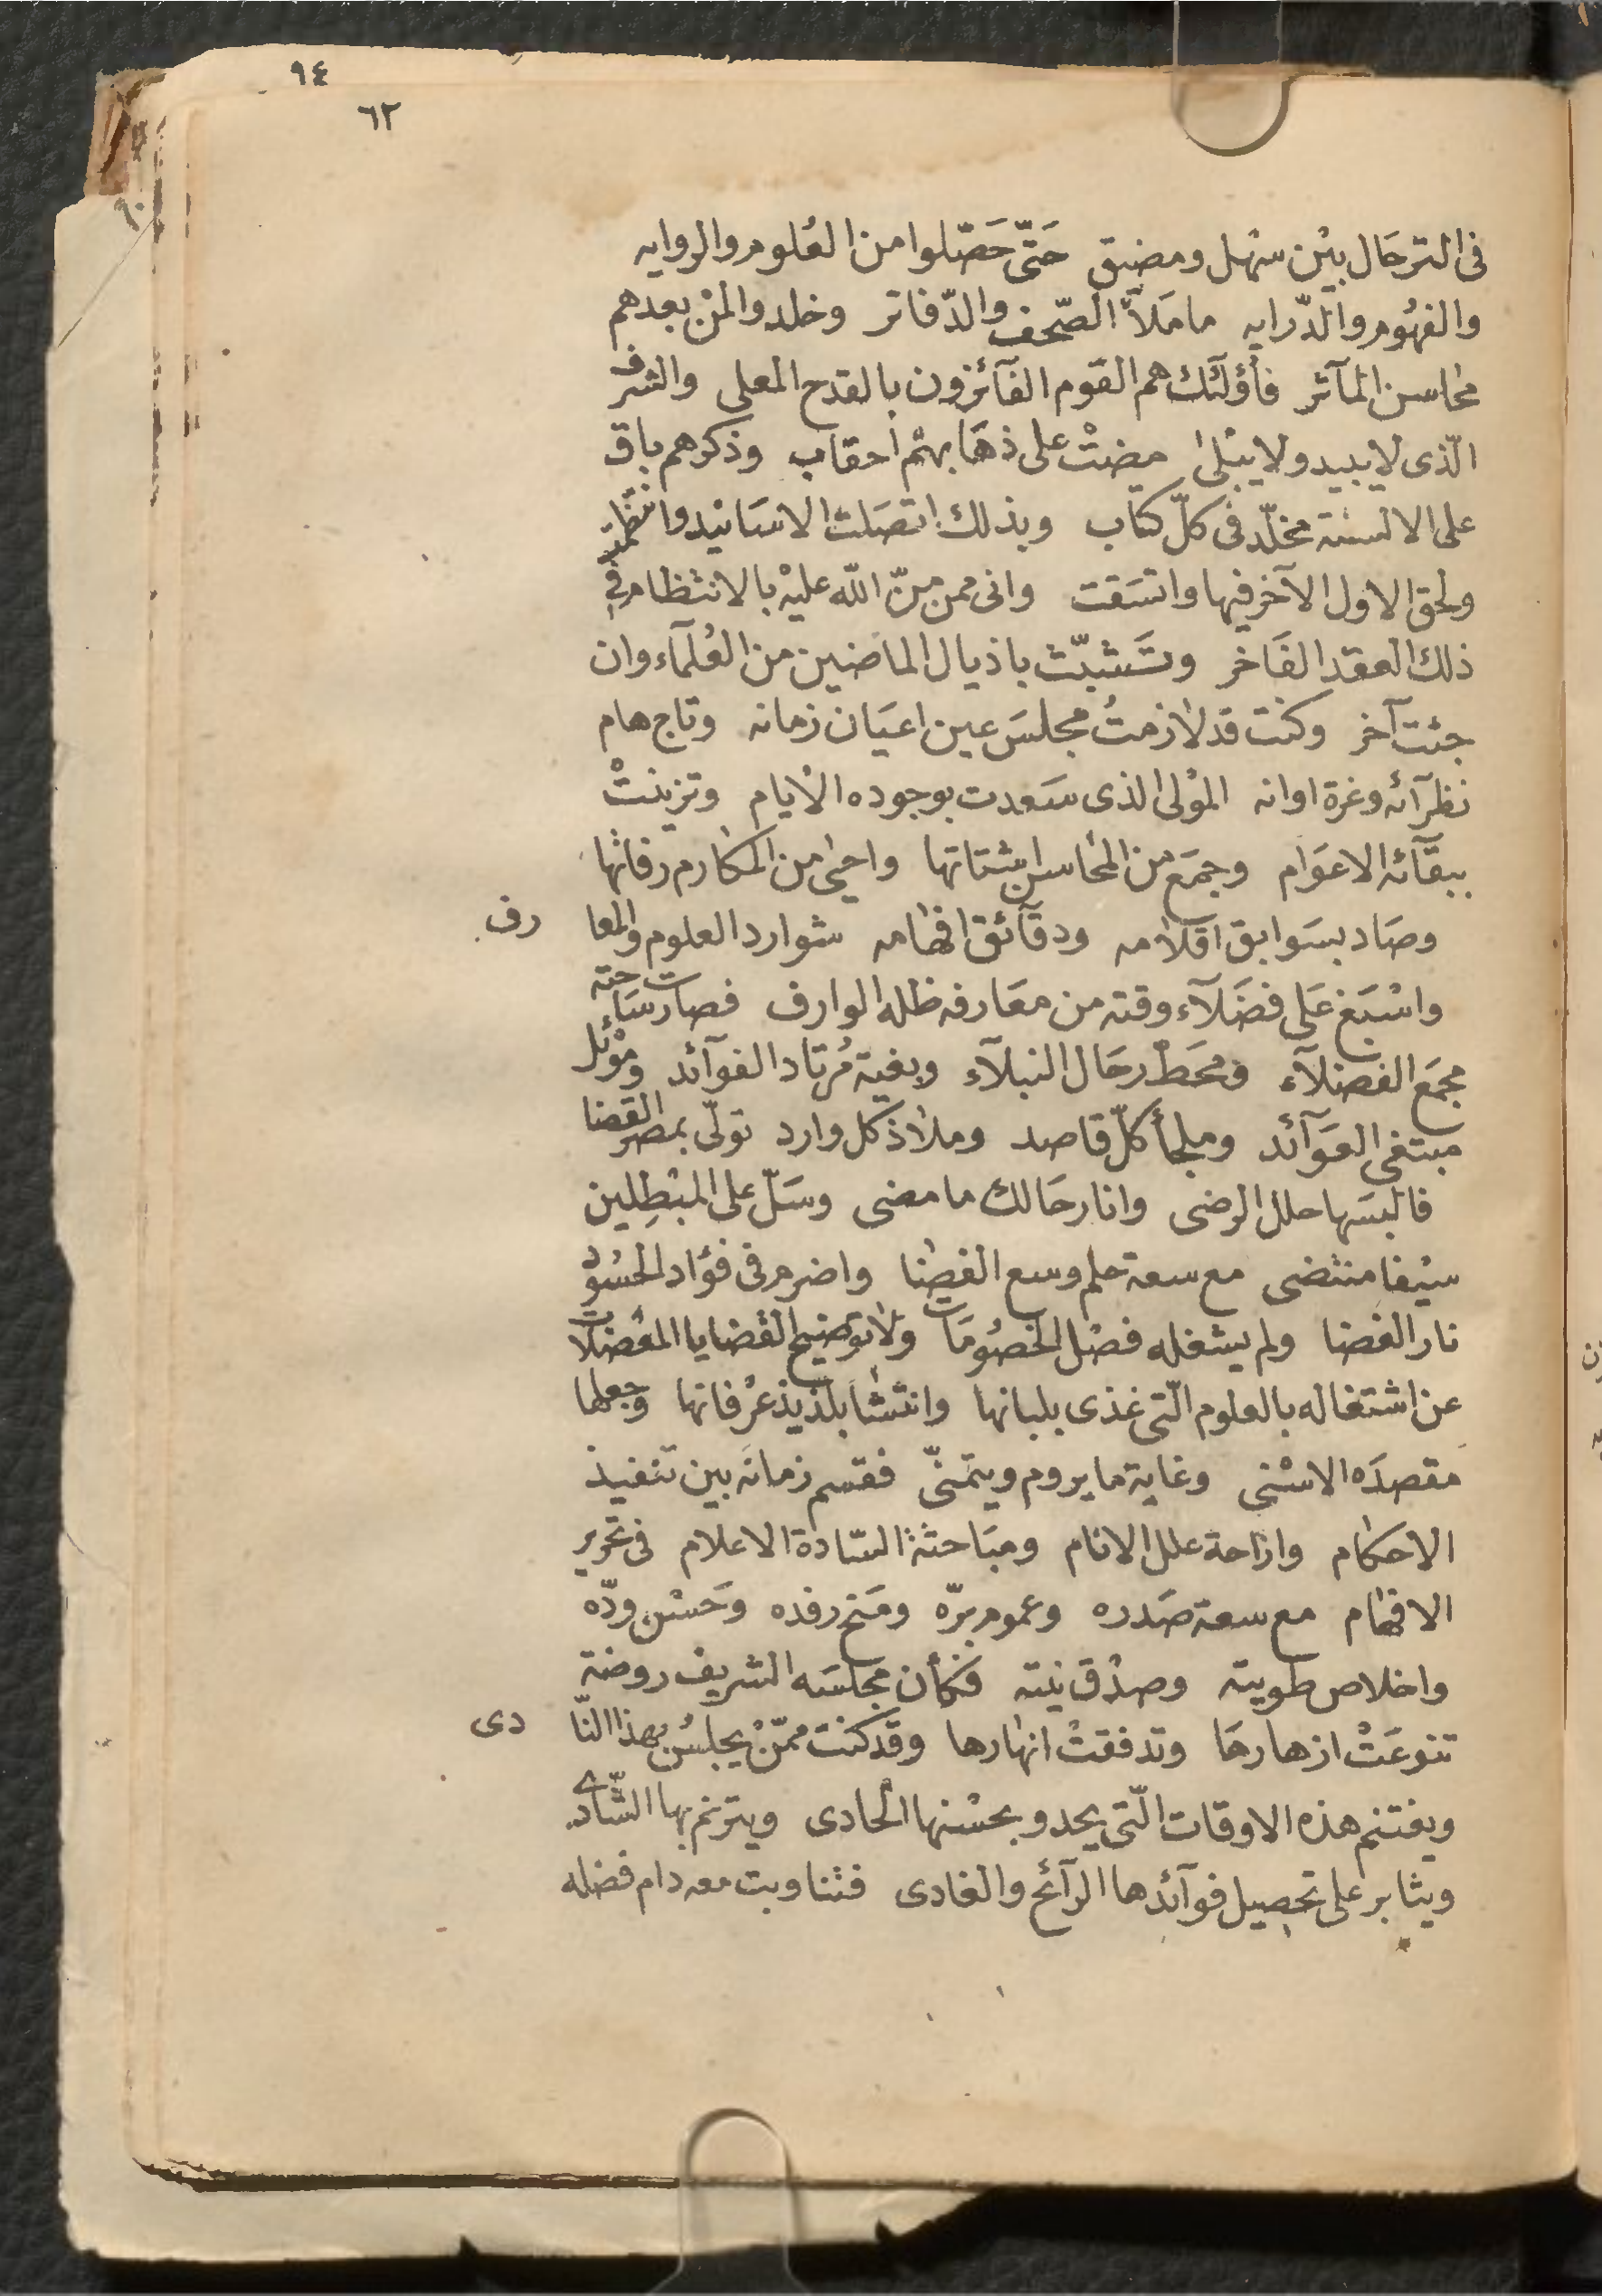 ٩٤
٦٢
٩٠
فى الترحَال بيْن سهْل ومضيق حَتّى حَصّلوا من العُلوم والروايه
والفهُوم والدّرايه ما مَلَأ الصّحف والدّفاتر وخلدوا لمنْ بعدهم
محاسن المآثر فأولَئك هم القوم الفآئزون بالقدح المعلى والشرف
الّذى لا يبيد ولا يبْلى مضتْ على ذهَابهمْ أحقاب وذكرهم باق
على الالسنة مخلّد فى كلّ كتاب وبذلك اتصَلت الاسَانيد وانتظمت
ولحق الاول الآخر فيها واتسَقت وانى ممن منّ اللّه عليْه بالانتظام فى
ذلك العقد الفَاخر وتَشبّث باذيال الماضين من العُلَمآء وان
جئت آخر وكنت قد لازمتُ مجلسَ عين اعيَان زمانه وتاج هام
نظرآئه وغرة اوانه الموْلى الذى سَعدت بوجوده الأيام وتزينتْ
ببقَآئه الاعوَام وجمَع من المحَاسن اشتاتها واحيى من المكارم رفاتها
وصَاد بسَوابق اقلامه ودقآئق افهامه شوارد العلوم والمعارف
واسْبَغ عَلى فضَلآء وقته من معَارفه ظله الوارف فصارت سَاحته
مجمَع الفضلآء ومحَطّ رحَال النبلآء وبغية مُرتاد الفوآئد وموْئل
مبتغى العوَآئد وملجأ كلّ قاصد وملاذ كل وارد تولّى بمصر القضا
فالبسَها حلل الرضى وانار حَالك ما مضى وسَلّ على المبْطِلين
سيْفا منتضى مع سعة حلم وسع الفضا واضرم فى فؤاد الحسُود
نار الغضا ولم يشغله فصْل الخصُومَات ولا توضيح القضايا المعْضلات
عن اشتغاله بالعلوم الّتى غذى بلبانها وانتشَا بلذيذ عرْفانها وجعلها
مقصدَه الاسْنى وغاية ما يروم ويتمنّى فقسم زمانَه بين تنفيذ
الاحكام وازاحة علل الانام ومبَاحثة السّادة الاعلام فى تحرير
الافهام مع سعة صَدره وعموم برّه ومَنح رفده وحَسْن ودّه
واخلاص طويته وصدْق نيته فكأن مجلسَه الشريف روضة
تنوعَتْ ازهارهَا وتدفقتْ انهارها وقد كنت ممّنْ يجلسُ بهذا النّادى
ويغتنم هذه الاوقات الّتى يحدو بحسْنها الحادى ويترنم بها الشّادى
ويثابر على تحصيل فوآئدها الرآئح والغادى فتناوبت معه دام فضله